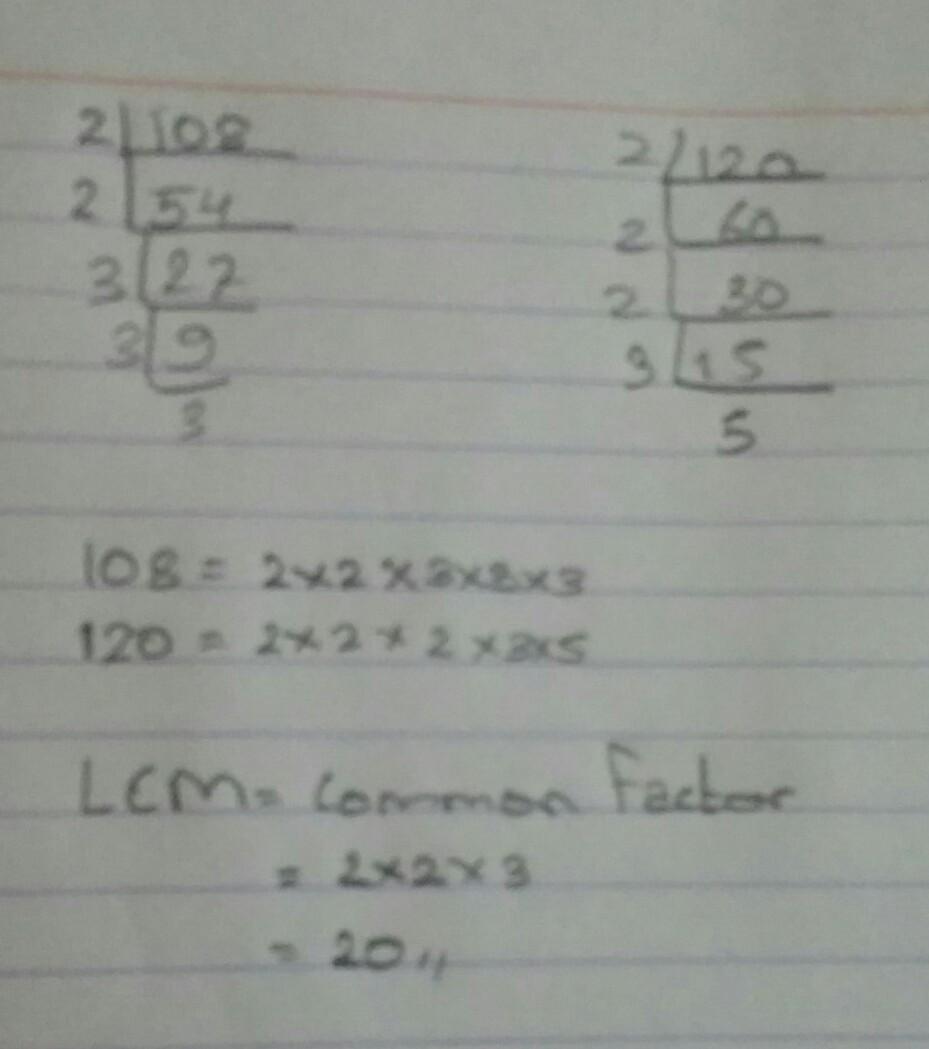 2 108
2 54
3 27
3 9
3
2 120
2 60
2 30
3 15
5
108 = 2×2×3×3×3
120 = 2×2×2×3×5
LCM = Common Factor
= 2×2×3
= 20,,